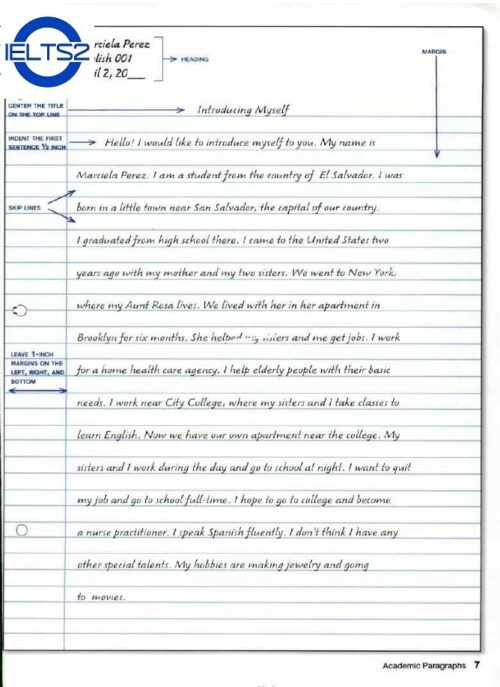 IELTS2
rciela Perez
lish 001
il 2, 20___
HEADING
MARGIN
CENTER THE TITLE
ON THE TOP LINE
Introducing Myself
INDENT THE FIRST
SENTENCE ½ INCH
Hello! I would like to introduce myself to you. My name is
Marciela Perez. I am a student from the country of El Salvador. I was
SKIP LINES
born in a little town near San Salvador, the capital of our country.
I graduated from high school there. I came to the United States two
years ago with my mother and my two sisters. We went to New York,
where my Aunt Rosa lives. We lived with her in her apartment in
Brooklyn for six months. She helped my sisters and me get jobs. I work
LEAVE 1-INCH
MARGINS ON THE
LEFT, RIGHT, AND
BOTTOM
for a home health care agency. I help elderly people with their basic
needs. I work near City College, where my sisters and I take classes to
learn English. Now we have our own apartment near the college. My
sisters and I work during the day and go to school at night. I want to quit
my job and go to school full-time. I hope to go to college and become
a nurse practitioner. I speak Spanish fluently. I don't think I have any
other special talents. My hobbies are making jewelry and going
to movies.
Academic Paragraphs 7